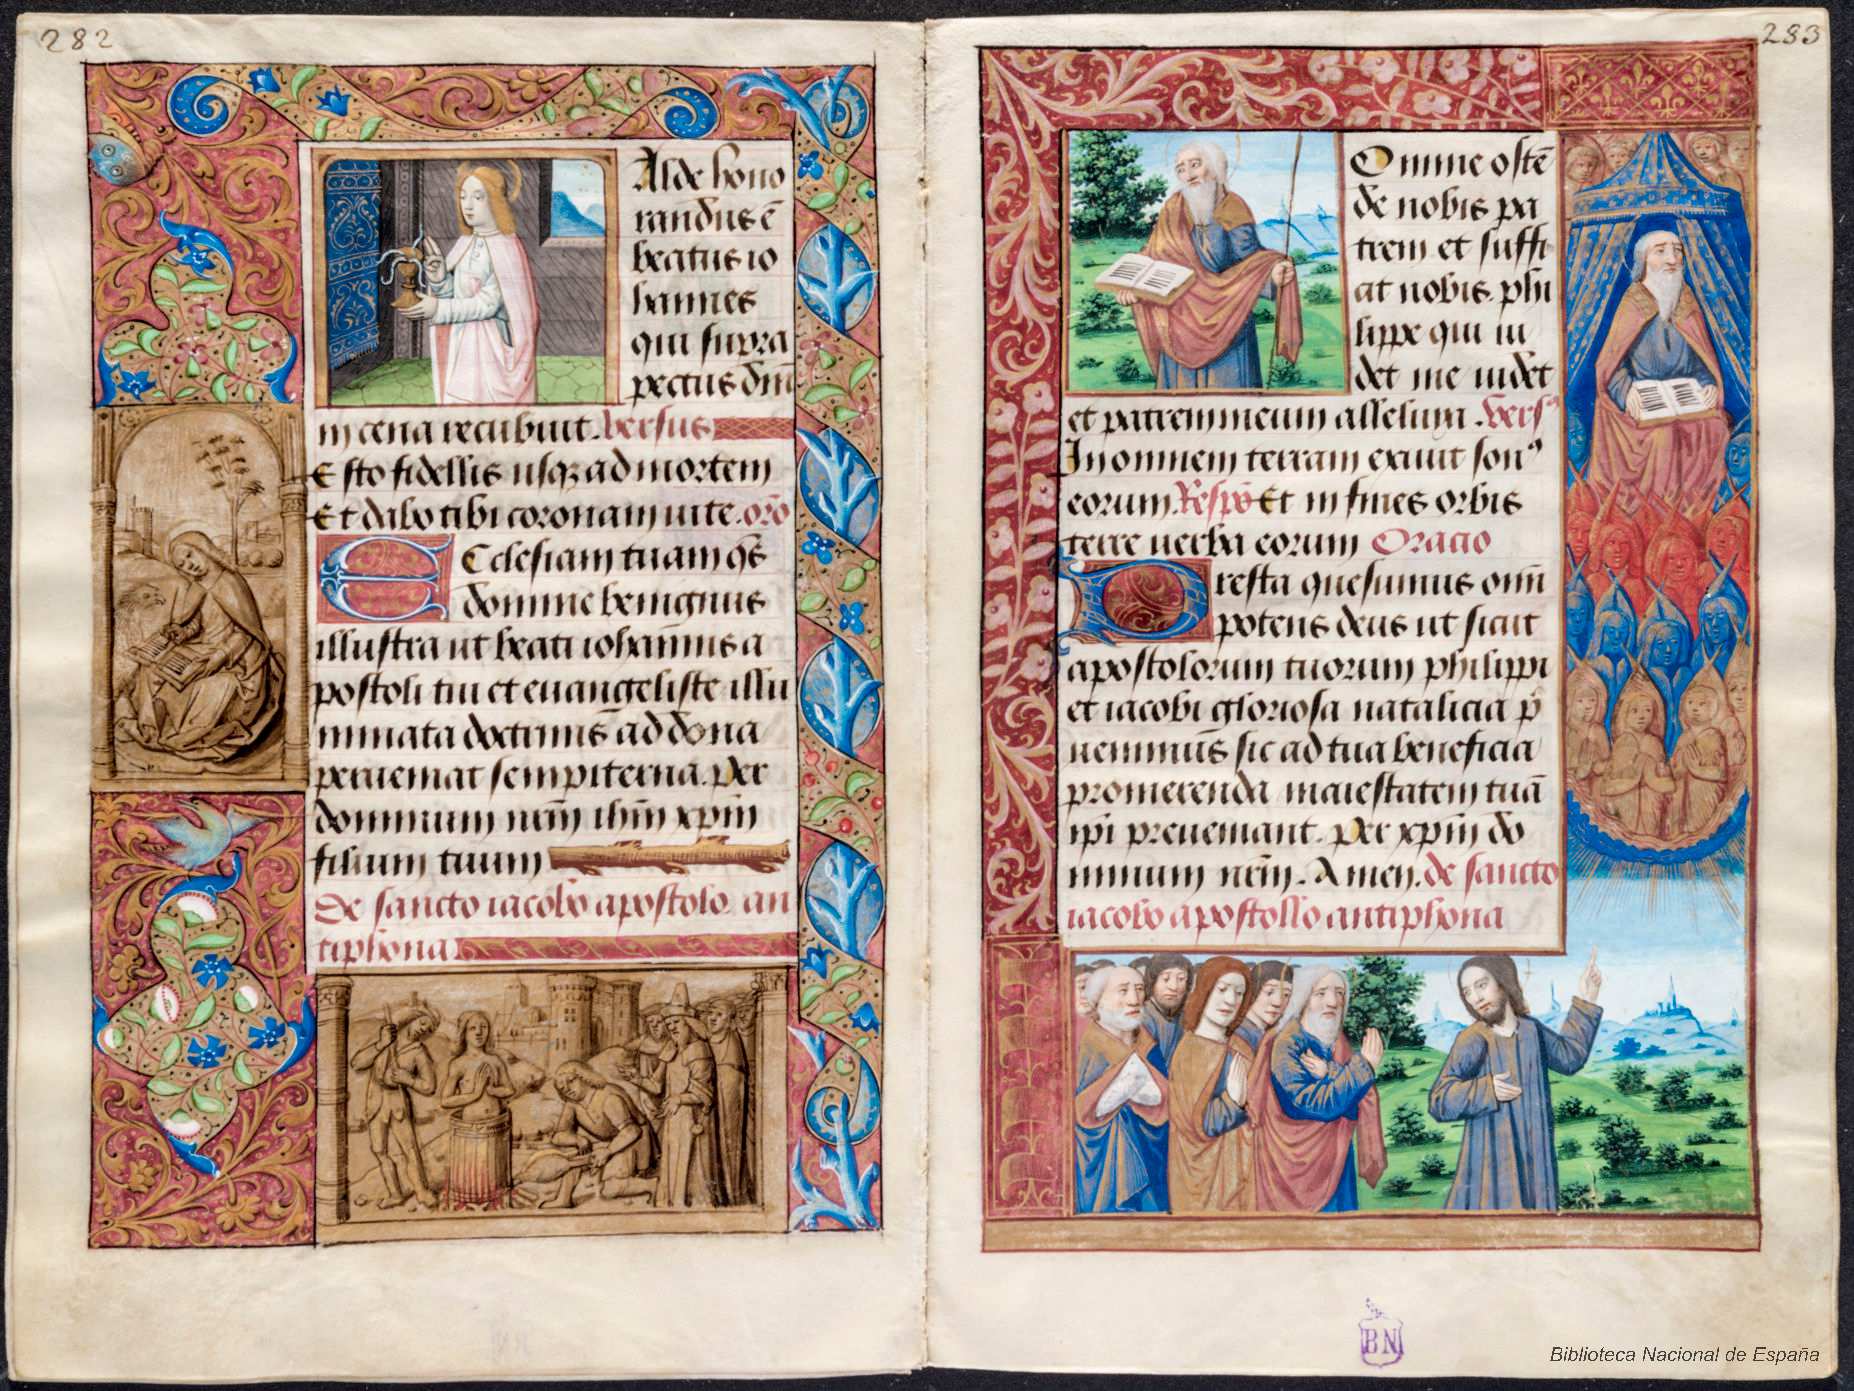 282
Alde hono
randus ē
beatus io
hannes
qui supra
pectus dm̄
in cena recubuit. versus
Esto fidellis usqz ad mortem
Et dabo tibi coronam vite. oro
Ecclesiam tuam qs̄
domine benignus
illustra ut beati iohannis a
postoli tui et euangeliste illu
minata doctrinis ad dona
perueniat sempiterna. Per
dominum nrm̄ ihm̄ xpm̄
filium tuum
De sancto iacobo apostolo an
tiphona
283
Domine ostē
de nobis pa
trem et suffi
cit nobis phi
lippe qui vi
det me videt
et patrem meum alleluya. Vers⁹
In omnem terram exiuit son⁹
eorum. Respō Et in fines orbis
terre verba eorum Oracio
Presta quesumus omn̄
potens deus ut sicut
apostolorum tuorum philippi
et iacobi gloriosa natalicia p̄
uenimus sic ad tua beneficia
promerenda maiestatem tuā
ipi preueniant. Per xpm̄ do
minum nrm̄. Amen. de sancto
iacobo apostollo antiphona
BN
Biblioteca Nacional de España